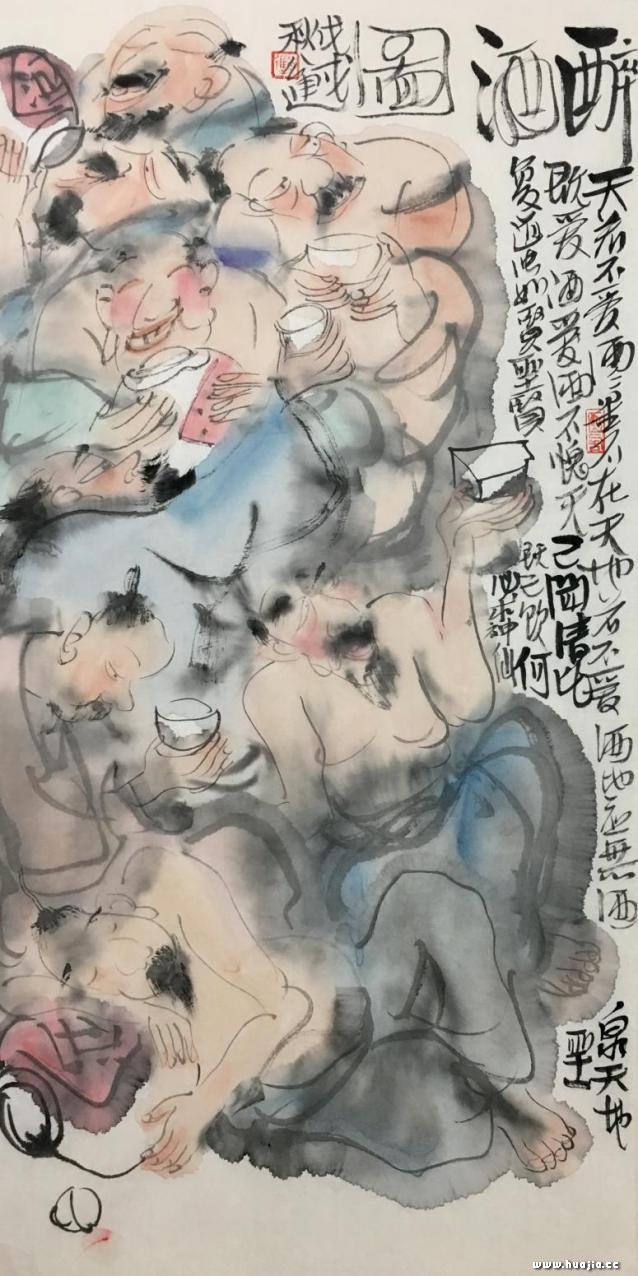 醉酒圖
天若不爱酒〻星不在天地若不爱酒地应無酒泉天地
既爱酒爱酒不愧天已闻清比聖
复道浊如賢聖賢既已飲何
必求神仙
戊戌
秋
www.huajia.cc